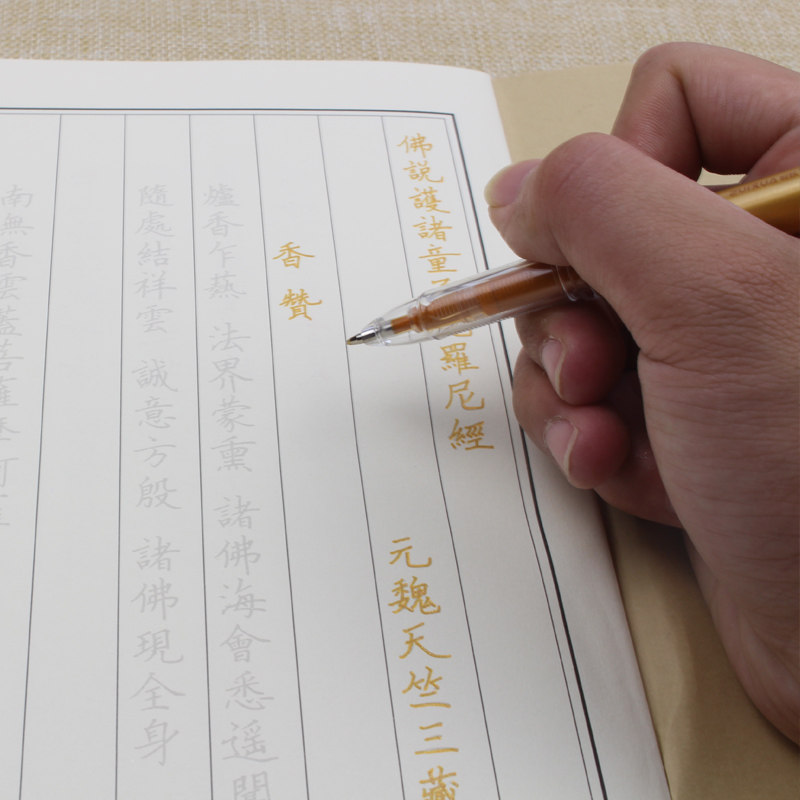 佛説護諸童 羅尼經
元魏天竺三藏
香贊
爐香乍爇 法界蒙熏 諸佛海會悉遥聞
隨處結祥雲 誠意方殷 諸佛現全身
南無香雲蓋菩薩